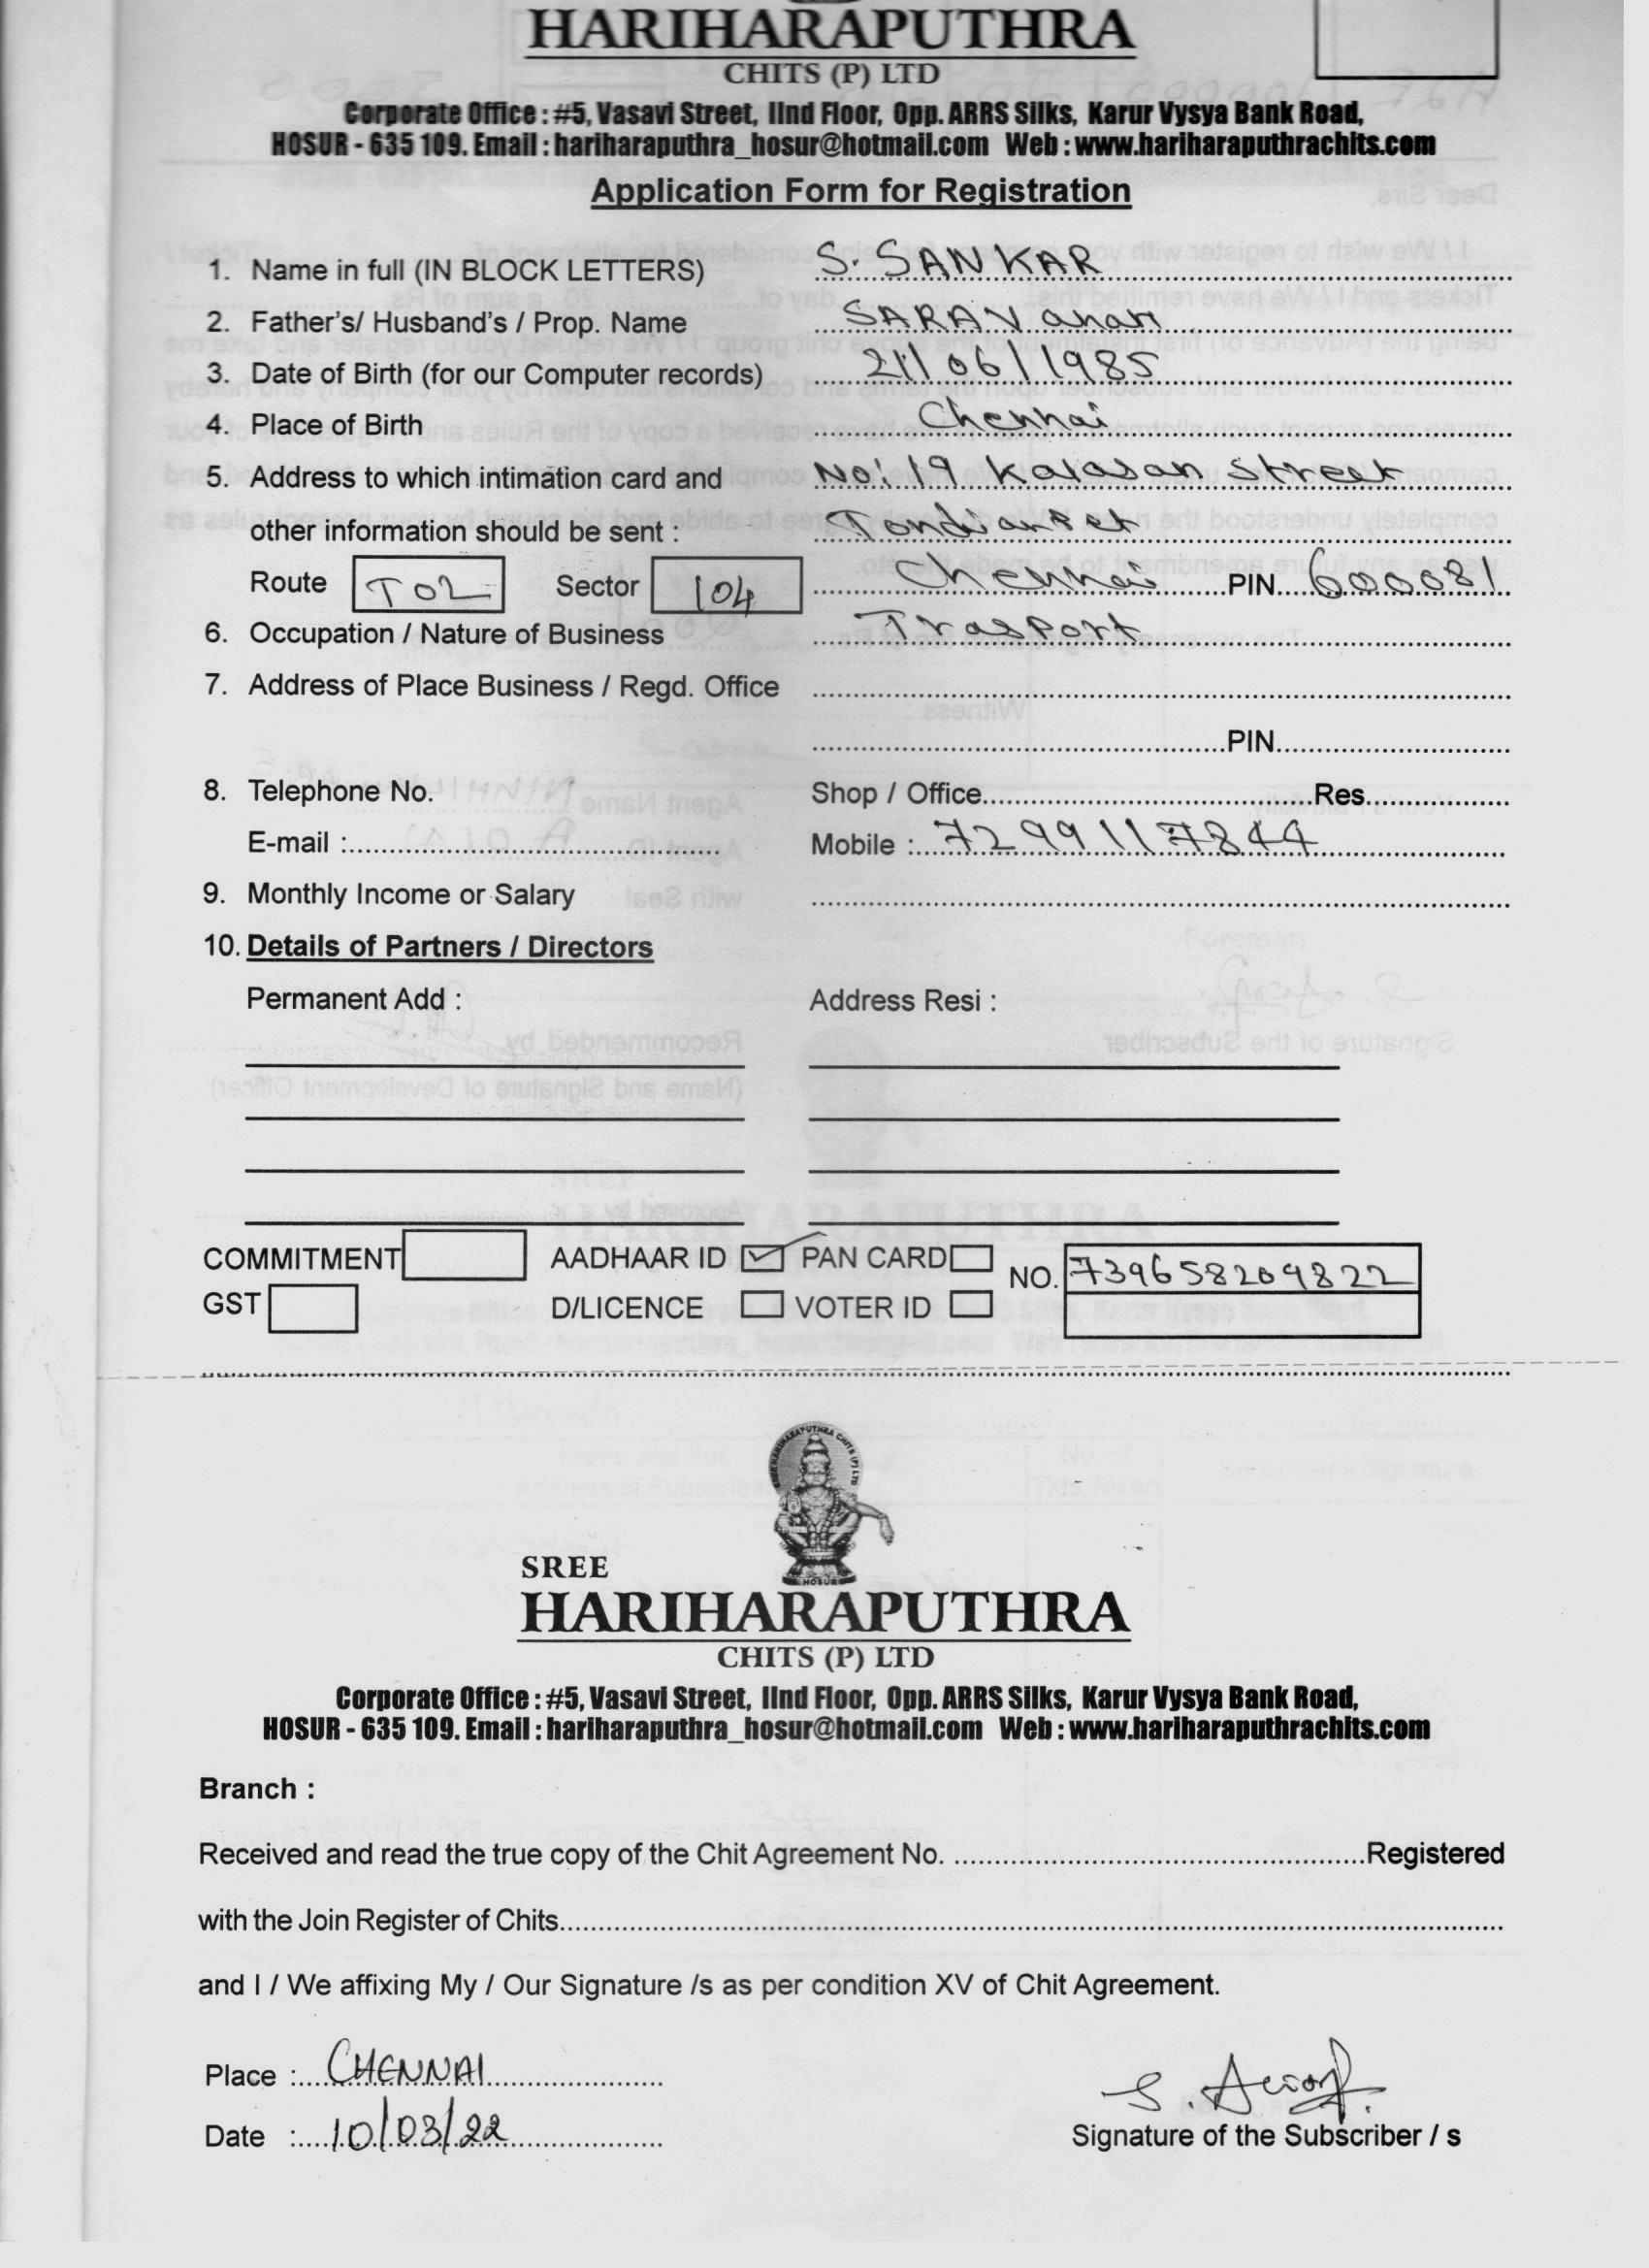 HARIHARAPUTHRA
CHITS (P) LTD
Corporate Office : #5, Vasavi Street, IInd Floor, Opp. ARRS Silks, Karur Vysya Bank Road,
HOSUR - 635 109. Email : hariharaputhra_hosur@hotmail.com Web : www.hariharaputhrachits.com
Application Form for Registration
1. Name in full (IN BLOCK LETTERS) S. SANKAR
2. Father's/ Husband's / Prop. Name SARAVanan
3. Date of Birth (for our Computer records) 21/06/1985
4. Place of Birth Chennai
5. Address to which intimation card and No: 19 Kalasan Street
other information should be sent : Tondiarpet
Route T02 Sector 104 Chennai PIN 600081
6. Occupation / Nature of Business Trasport
7. Address of Place Business / Regd. Office
PIN
8. Telephone No. Shop / Office Res
E-mail : Mobile : 7299117844
9. Monthly Income or Salary
10. Details of Partners / Directors
Permanent Add : Address Resi :
COMMITMENT AADHAAR ID PAN CARD NO. 739658209822
GST D/LICENCE VOTER ID
SREE HARIHARAPUTHRA CHITS (P) LTD
HOSUR
SREE
HARIHARAPUTHRA
CHITS (P) LTD
Corporate Office : #5, Vasavi Street, IInd Floor, Opp. ARRS Silks, Karur Vysya Bank Road,
HOSUR - 635 109. Email : hariharaputhra_hosur@hotmail.com Web : www.hariharaputhrachits.com
Branch :
Received and read the true copy of the Chit Agreement No. Registered
with the Join Register of Chits
and I / We affixing My / Our Signature /s as per condition XV of Chit Agreement.
Place : CHENNAI
Date : 10/03/22
S.
Signature of the Subscriber / s